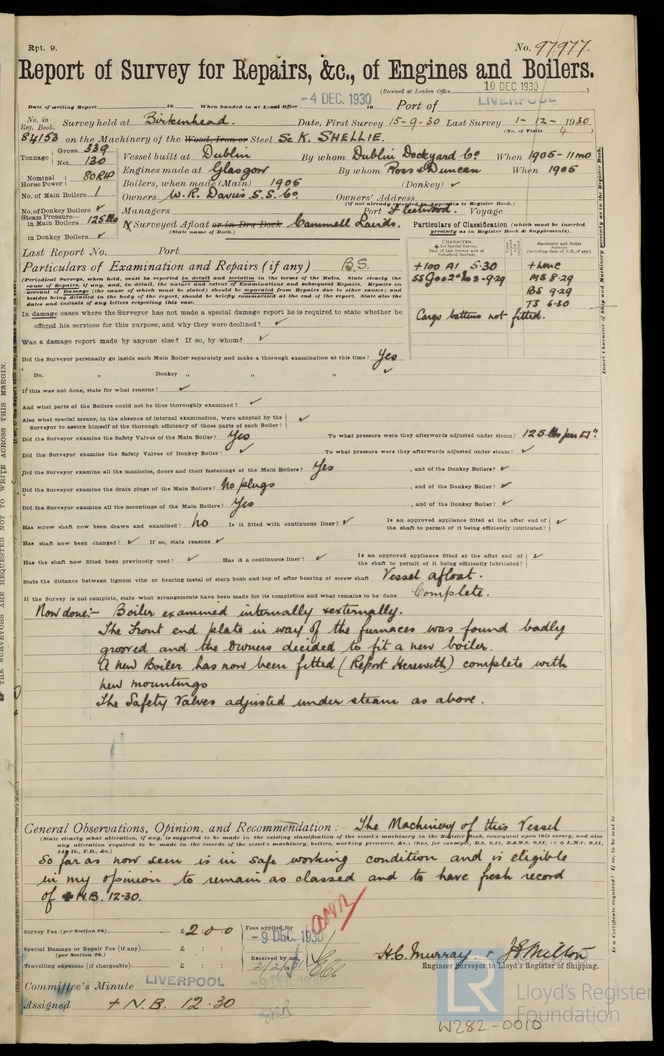 Rpt. 9.
No. 97977.
Report of Survey for Repairs, &c., of Engines and Boilers.
(Received at London Office 10 DEC 1930)
Date of writing Report to When handed in at Local Office -4 DEC. 1930 Port of LIVERPOOL
No. in Reg. Book. Survey held at Birkenhead. Date, First Survey 15-9-30 Last Survey 1-12-1930
(No. of Visits 4)
84153 on the Machinery of the Wood, Iron or Steel Sc K. SHELLIE.
Tonnage Gross 339 Net 130
Vessel built at Dublin By whom Dublin Dockyard Co When 1905-11mo
Engines made at Glasgow By whom Ross & Duncan When 1905
Nominal Horse Power 80 RHP
Boilers, when made (Main) 1905 (Donkey) ✓
No. of Main Boilers 1 Owners W.R. Davis S.S. Co Owners' Address
(if not already recorded in Appendix to Register Book.)
No. of Donkey Boilers ✓ Managers Port Fleetwood. Voyage
Steam Pressure in Main Boilers 125 lbs
in Donkey Boilers ✓
If Surveyed Afloat or in Dry Dock Cammell Lairds.
(State name of Dock.)
Particulars of Classification (which must be inserted precisely as in Register Book & Supplements).
Last Report No. Port
+100 A1 5.30
SS Goo 2nd No 3-9-29
+LMC
MS 8.29
BS 9.29
TS 6.30
Cargo battens not fitted.
Particulars of Examination and Repairs (if any) B.S.
(Periodical Surveys, when held, must be reported in detail and seriatim in terms of the Rules. State clearly the cause of Repairs, if any, and, in detail, the nature and extent of Examinations and subsequent Repairs. Repairs on account of Damage (the cause of which must be stated) should be separated from Repairs due to other causes; and besides being detailed in the body of the report, should be briefly summarised at the end of the report. State also the dates and initials of any letters respecting this case.
In damage cases where the Surveyor has not made a special damage report he is required to state whether he
offered his services for this purpose, and why they were declined? ✓
Was a damage report made by anyone else? If so, by whom? ✓
Did the Surveyor personally go inside each Main Boiler separately and make a thorough examination at this time? Yes
Do. „ Donkey „ „ „ „ ✓
If this was not done, state for what reasons? ✓
And what parts of the Boilers could not be thus thoroughly examined? ✓
Also what special means, in the absence of internal examination, were adopted by the
Surveyor to assure himself of the thorough efficiency of those parts of each Boiler? ✓
Did the Surveyor examine the Safety Valves of the Main Boiler? Yes To what pressure were they afterwards adjusted under steam? 125 lbs per □"
Did the Surveyor examine the Safety Valves of Donkey Boiler? ✓ To what pressure were they afterwards adjusted under steam? ✓
Did the Surveyor examine all the manholes, doors and their fastenings of the Main Boilers? Yes , and of the Donkey Boilers? ✓
Did the Surveyor examine the drain plugs of the Main Boilers? No plugs , and of the Donkey Boilers? ✓
Did the Surveyor examine all the mountings of the Main Boilers? Yes , and of the Donkey Boilers? ✓
Has screw shaft now been drawn and examined? No Is it fitted with continuous liner? ✓ Is an approved appliance fitted at the after end of the shaft to permit of it being efficiently lubricated? ✓
Has shaft now been changed? ✓ If so, state reasons ✓
Has the shaft now fitted been previously used? ✓ Has it a continuous liner? ✓ Is an approved appliance fitted at the after end of the shaft to permit of it being efficiently lubricated? ✓
State the distance between lignum vitæ or bearing metal of stern bush and top of after bearing of screw shaft Vessel afloat.
If the Survey is not complete, state what arrangements have been made for its completion and what remains to be done Complete.
Now done:- Boiler examined internally & externally.
The Front end plate in way of the furnaces was found badly
grooved and the Owners decided to fit a new boiler.
A new Boiler has now been fitted (Report Herewith) complete with
new mountings
The Safety Valves adjusted under steam as above.
General Observations, Opinion, and Recommendation:- The Machinery of this Vessel
so far as now seen is in safe working condition and is eligible
in my opinion to remain as classed and to have fresh record
of +N.B. 12.30.
Survey Fee (per Section 29) £ 2 0 0 Fees applied for -9 DEC. 1930
Special Damage or Repair Fee (if any) (per Section 29.) £ : :
Travelling expenses (if chargeable) £ : : Received by me,
H.C. Murray. & J.E. Milton
Engineer Surveyor to Lloyd's Register of Shipping.
Committee's Minute LIVERPOOL -9 DEC 1930
Assigned + N.B. 12.30
LR Lloyd's Register Foundation
W282-0010